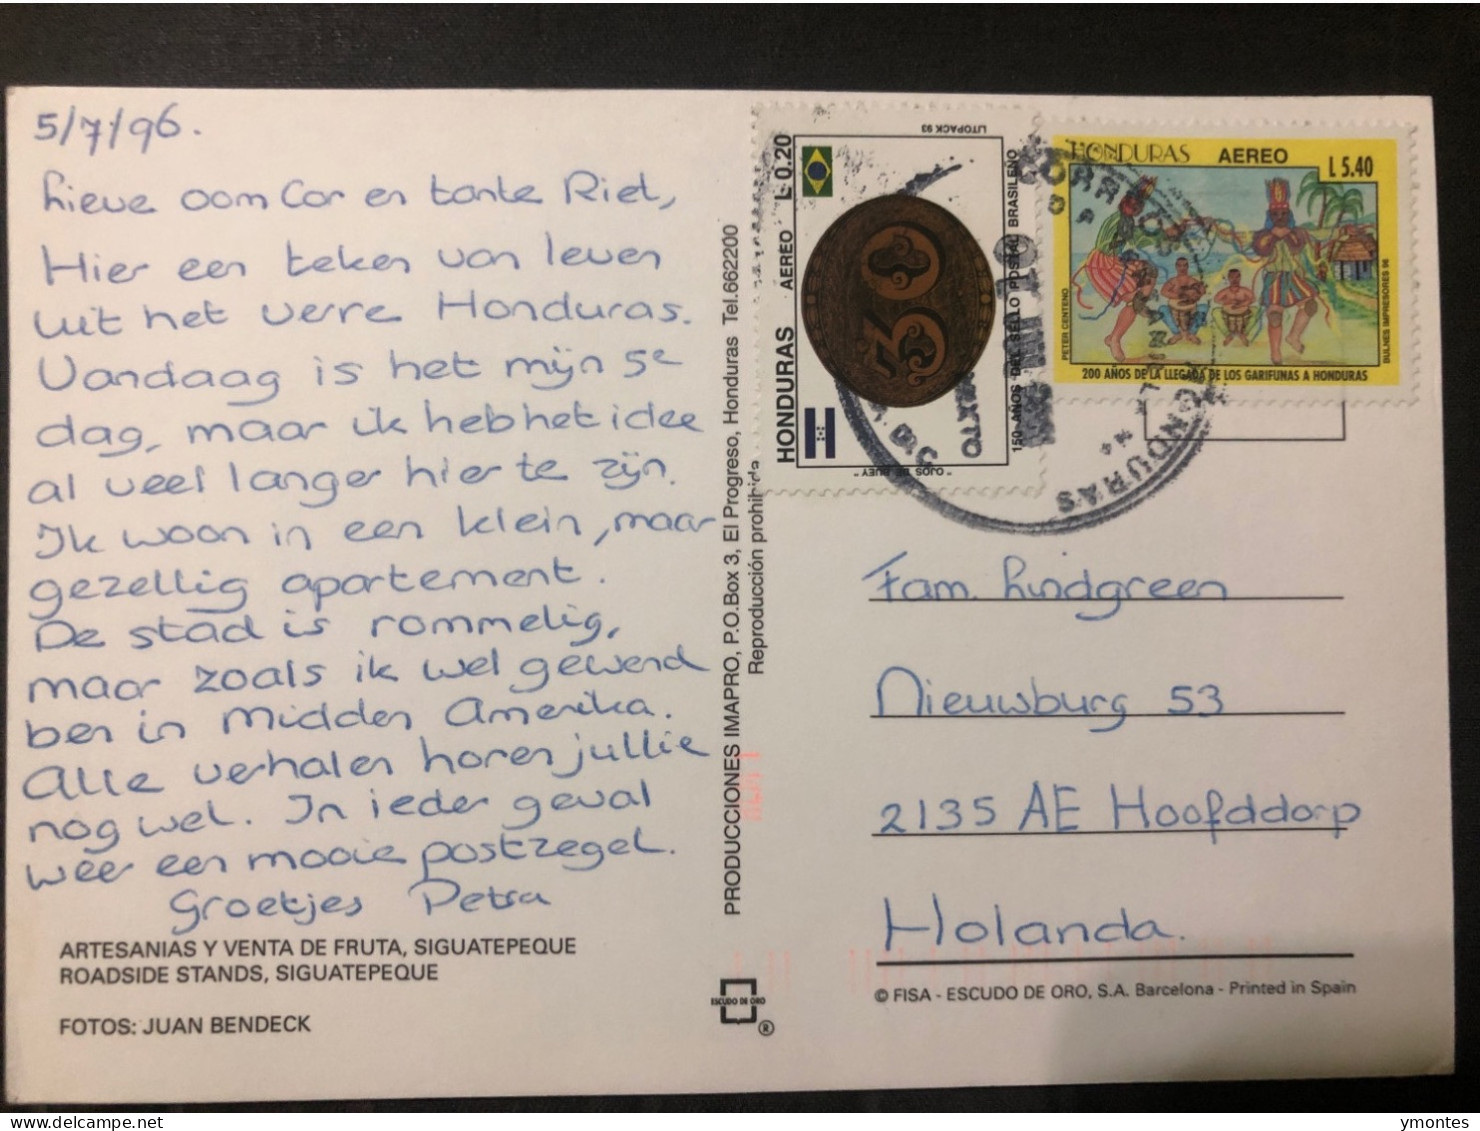 5/7/96.
Lieve oom Cor en tante Riet,
Hier een teken van leven
uit het verre Honduras.
Vandaag is het mijn 5e
dag, maar ik heb het idee
al veel langer hier te zijn.
Ik woon in een klein, maar
gezellig apartement.
De stad is rommelig,
maar zoals ik wel gewend
ben in Midden Amerika.
Alle verhalen horen jullie
nog wel. In ieder geval
weer een mooie postzegel.
Groetjes Petra
ARTESANIAS Y VENTA DE FRUTA, SIGUATEPEQUE
ROADSIDE STANDS, SIGUATEPEQUE
FOTOS: JUAN BENDECK
PRODUCCIONES IMAPRO, P.O.Box 3, El Progreso, Honduras Tel.662200
Reproducción prohibida
ESCUDO DE ORO
®
LITOPACK 93
HONDURAS AEREO L 0.20
30
150 AÑOS DEL SELLO POSTAL BRASILEÑO
"OJOS DE BUEY"
HONDURAS AEREO L 5.40
PETER CENTENO
BULNES IMPRESORES 96
200 AÑOS DE LA LLEGADA DE LOS GARIFUNAS A HONDURAS
CORREOS
HONDURAS
Fam. Lindgreen
Nieuwburg 53
2135 AE Hoofddorp
Holanda.
© FISA - ESCUDO DE ORO, S.A. Barcelona - Printed in Spain
ymontes